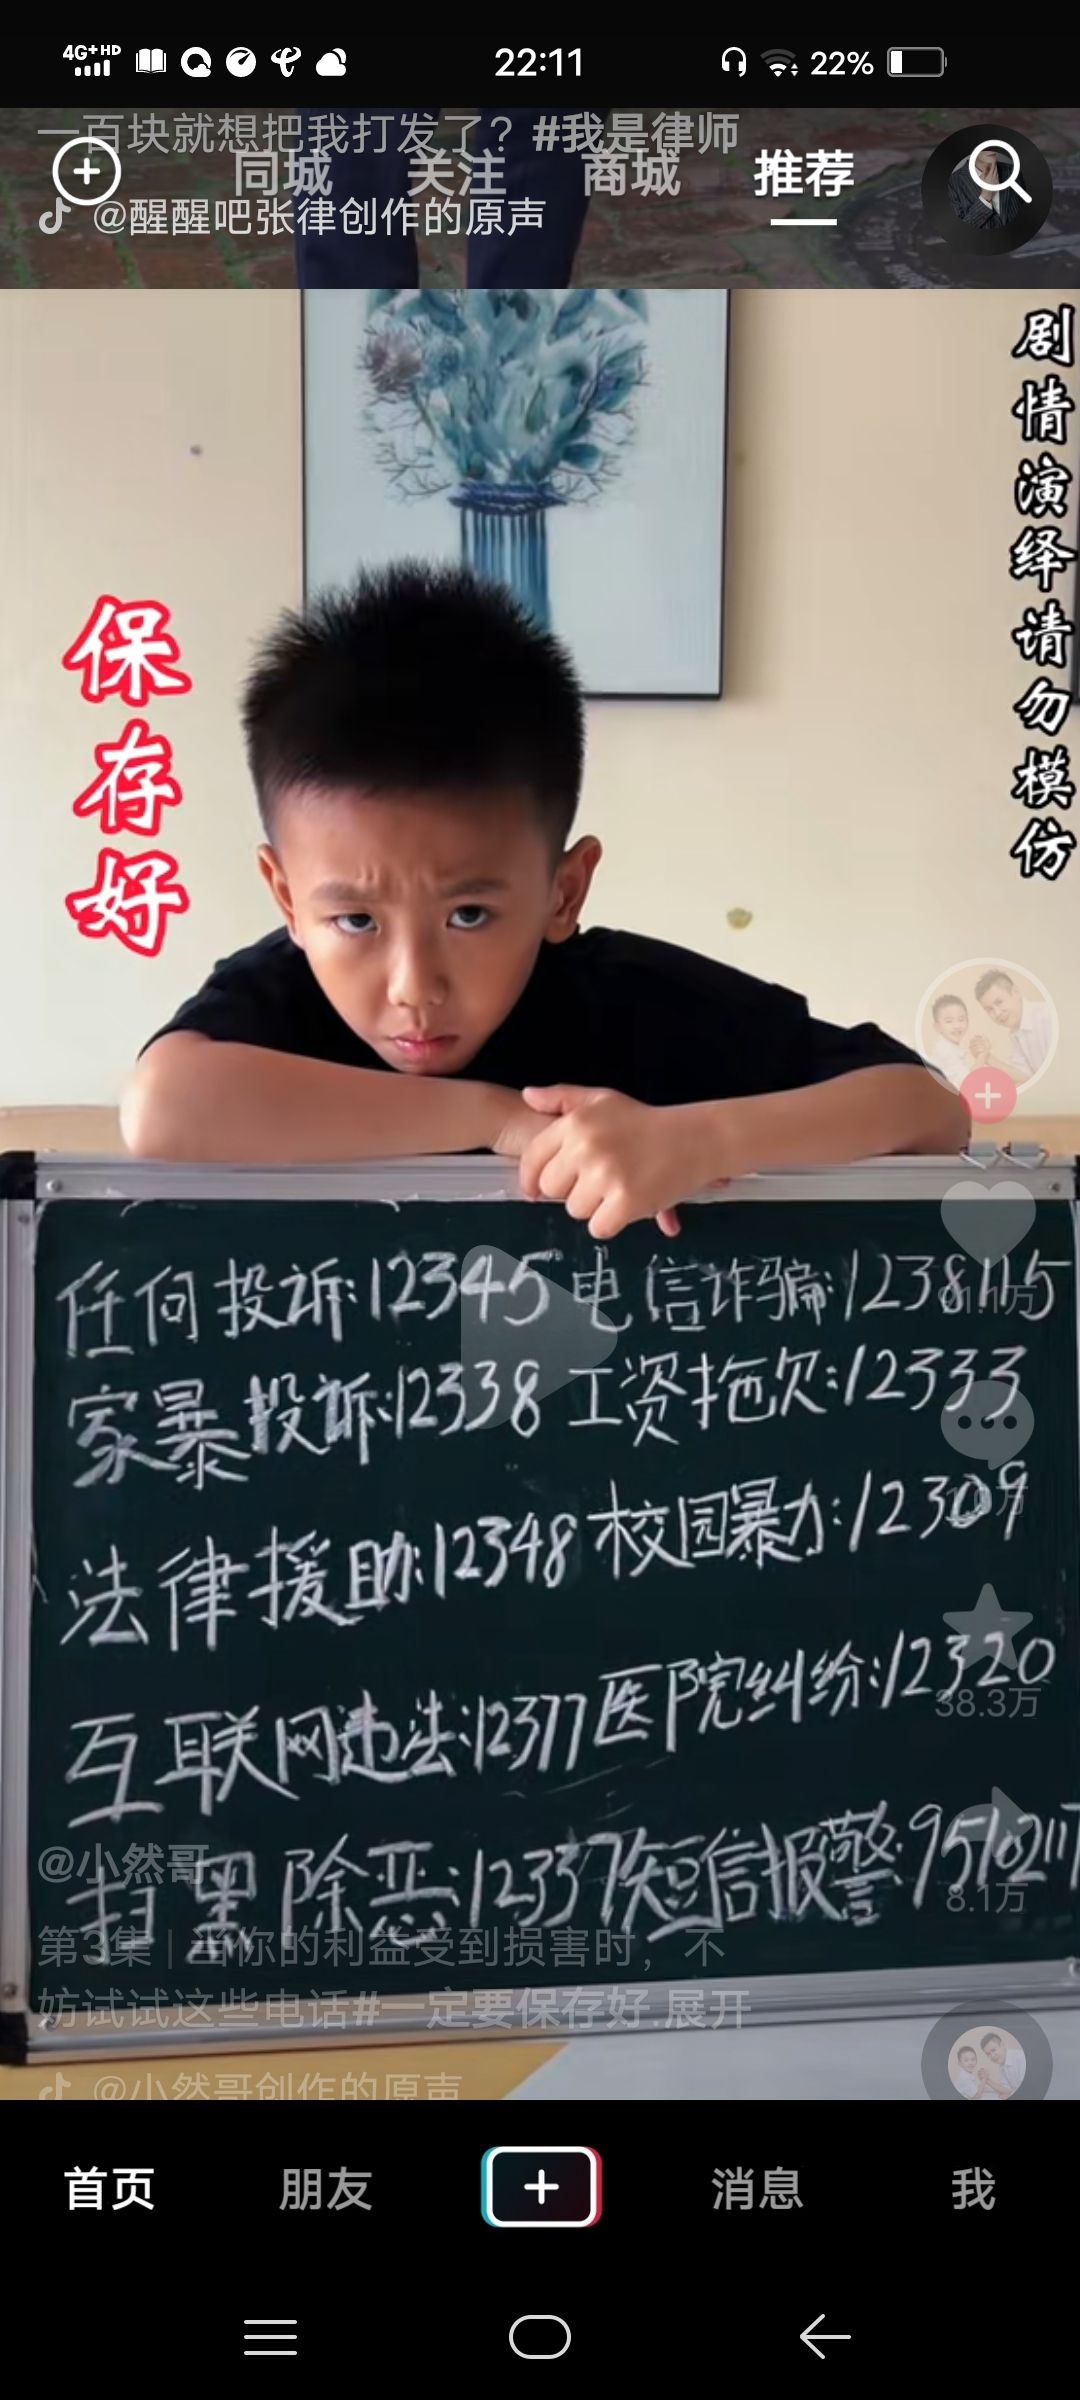 4G+HD 22:11 22%
一百块就想把我打发了？#我是律师
同城 关注 商城 推荐
@醒醒吧张律创作的原声
剧情演绎请勿模仿
保存好
任何投诉:12345 电信诈骗:12381
家暴投诉:12338 工资拖欠:12333
法律援助:12348 校园暴力:12309
互联网违法:12377 医院纠纷:12320
38.3万
扫黑除恶:12337 短信报警:
8.1万
@小然哥
第3集 | 当你的利益受到损害时，不
妨试试这些电话#一定要保存好.展开
@小然哥创作的原声
首页 朋友 消息 我